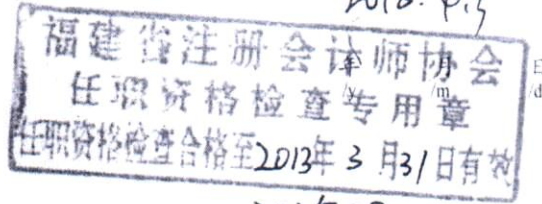 福建省注册会计师协会
任职资格检查专用章
任职资格检查合格至2013年3月31日有效
/y /m /d